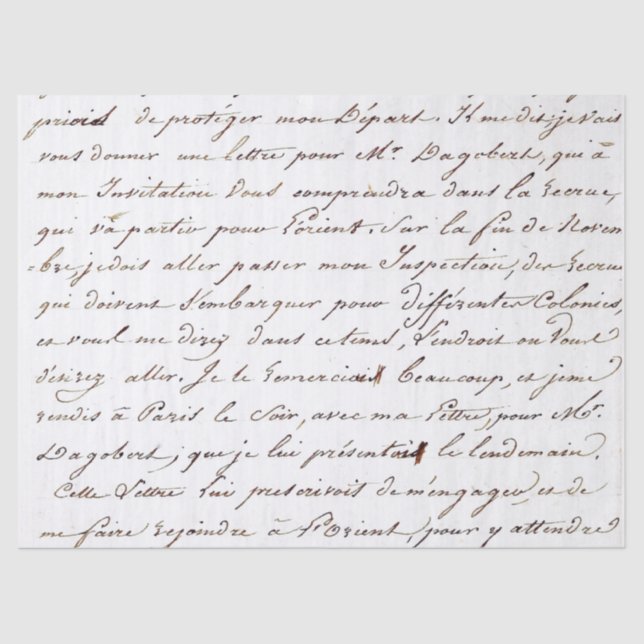 priois de protéger mon Départ. Il me dit, je vais
vous donner une lettre pour Mr. Dagobert, qui à
mon Invitation Vous comprendra dans la Recrue,
qui va partir pour l'orient. Sur la fin de Novem
=bre, je dois aller passer mon Inspection, des Recrue
qui doivent s'embarquer pour différentes Colonies,
et vous me direz dans ce tems, l'endroit ou Vous
désirez aller. Je le remerciais beaucoup, et je me
rendis à Paris le Soir, avec ma Lettre, pour Mr.
Dagobert, que je lui présentois le lendemain.
Cette Lettre Lui prescrivoit de m'engager, et de
me faire rejoindre à L'Orient, pour y attendre